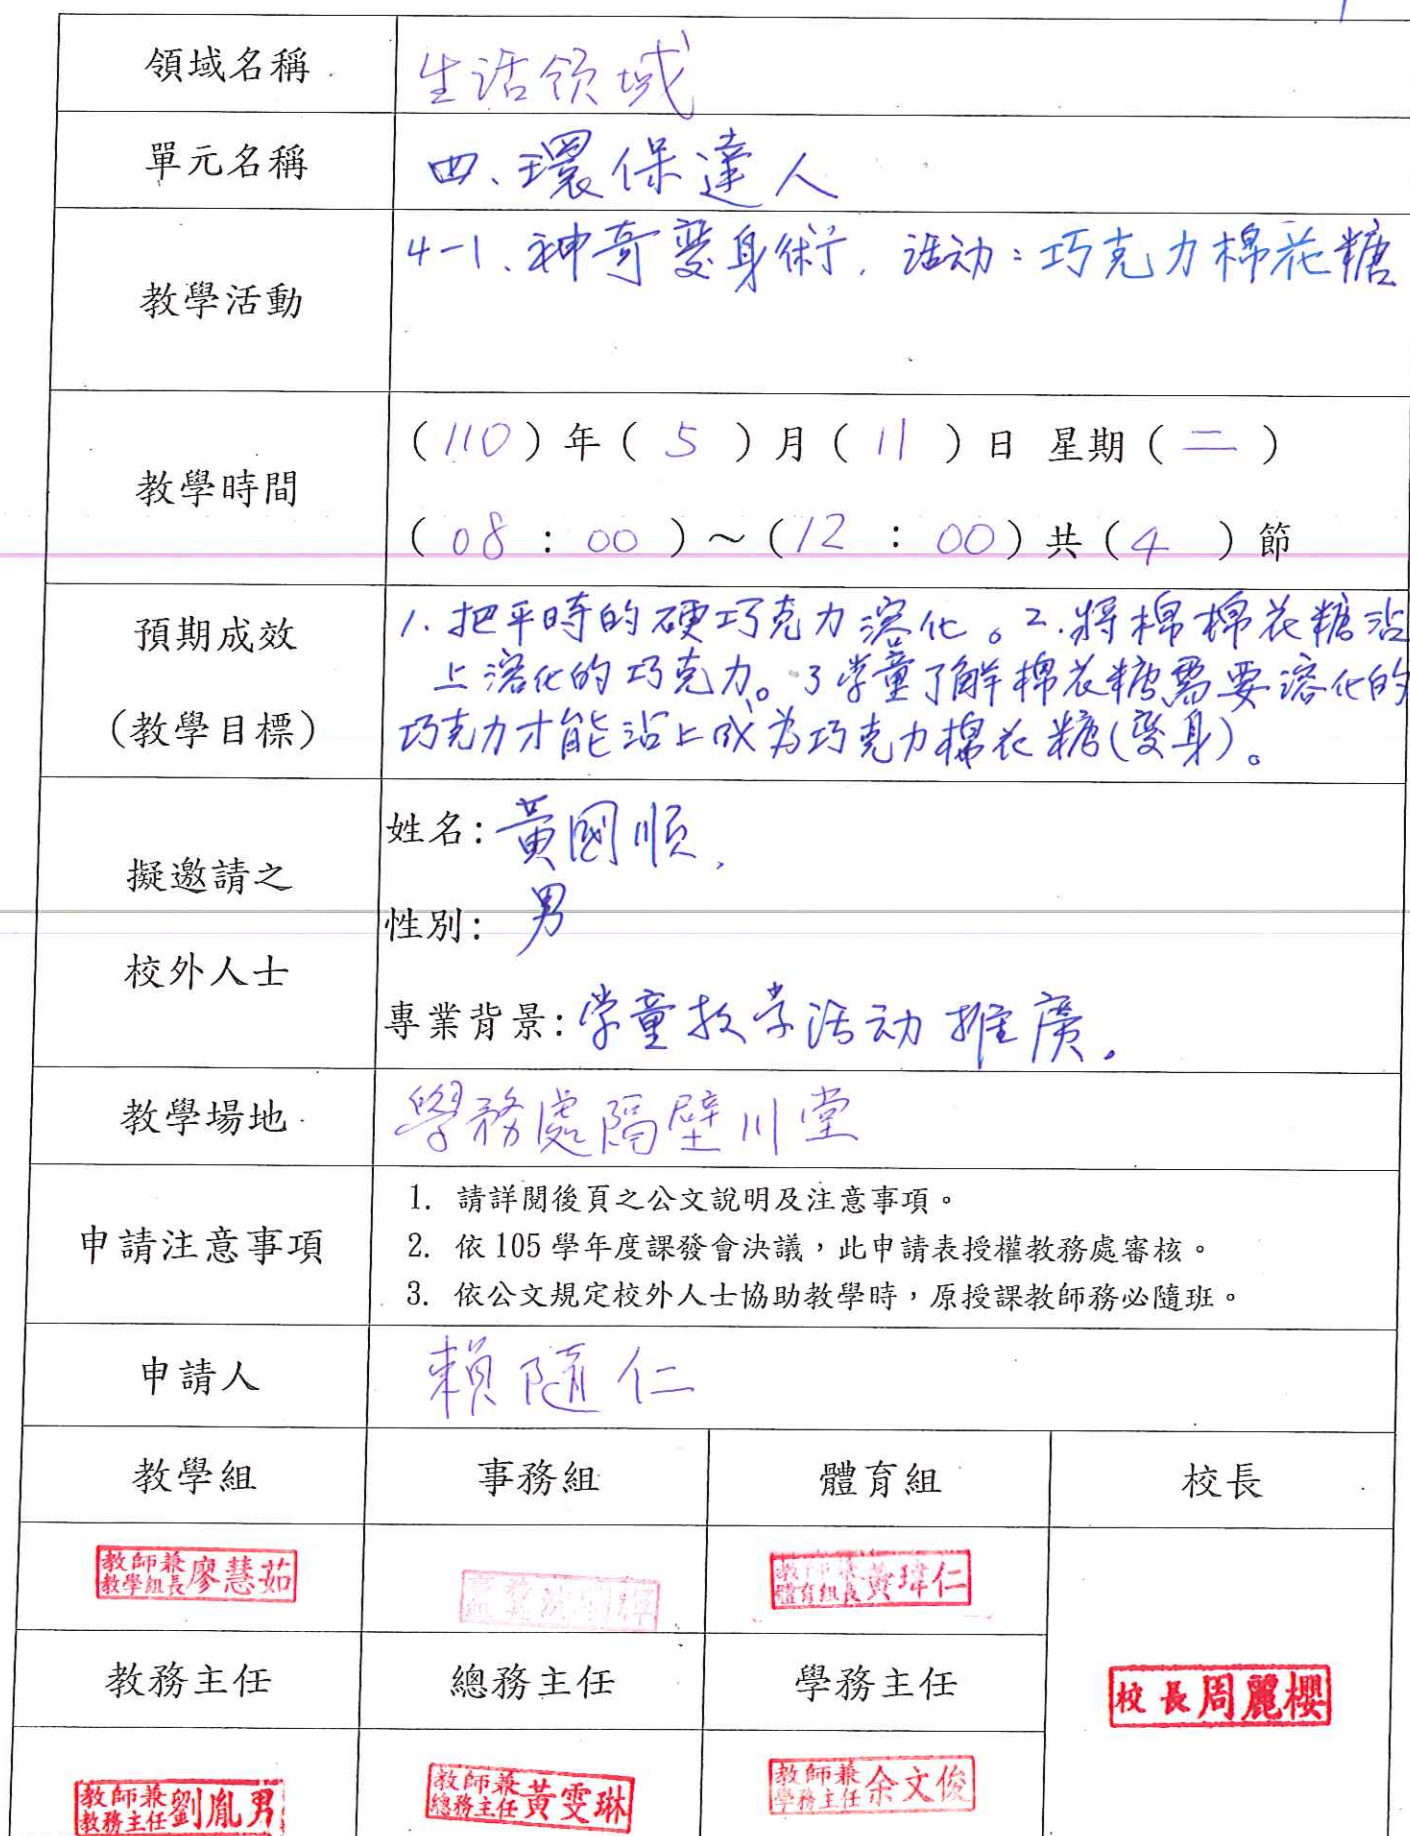 領域名稱 生活領域
單元名稱 四、環保達人
教學活動 4-1、神奇變身術. 活动：巧克力棉花糖
教學時間
(110)年(5)月(11)日 星期(二)
(08:00)～(12:00)共(4)節
預期成效
(教學目標)
1.把平時的硬巧克力溶化。2.將棉棉花糖沾
上溶化的巧克力。3学童了解棉花糖需要溶化的
巧克力才能沾上成為巧克力棉花糖(變身)。
擬邀請之
校外人士
姓名：黃國順.
性別：男
專業背景：学童教学活动推廣.
教學場地 學務處隔壁川堂
申請注意事項
1. 請詳閱後頁之公文說明及注意事項。
2. 依105學年度課發會決議，此申請表授權教務處審核。
3. 依公文規定校外人士協助教學時，原授課教師務必隨班。
申請人 賴隨仁
教學組 事務組 體育組 校長
教師兼教學組長廖慧茹
教師兼體育組長黃瑋仁
教務主任 總務主任 學務主任
校長周麗櫻
教師兼教務主任劉胤男
教師兼總務主任黃雯琳
教師兼學務主任余文俊